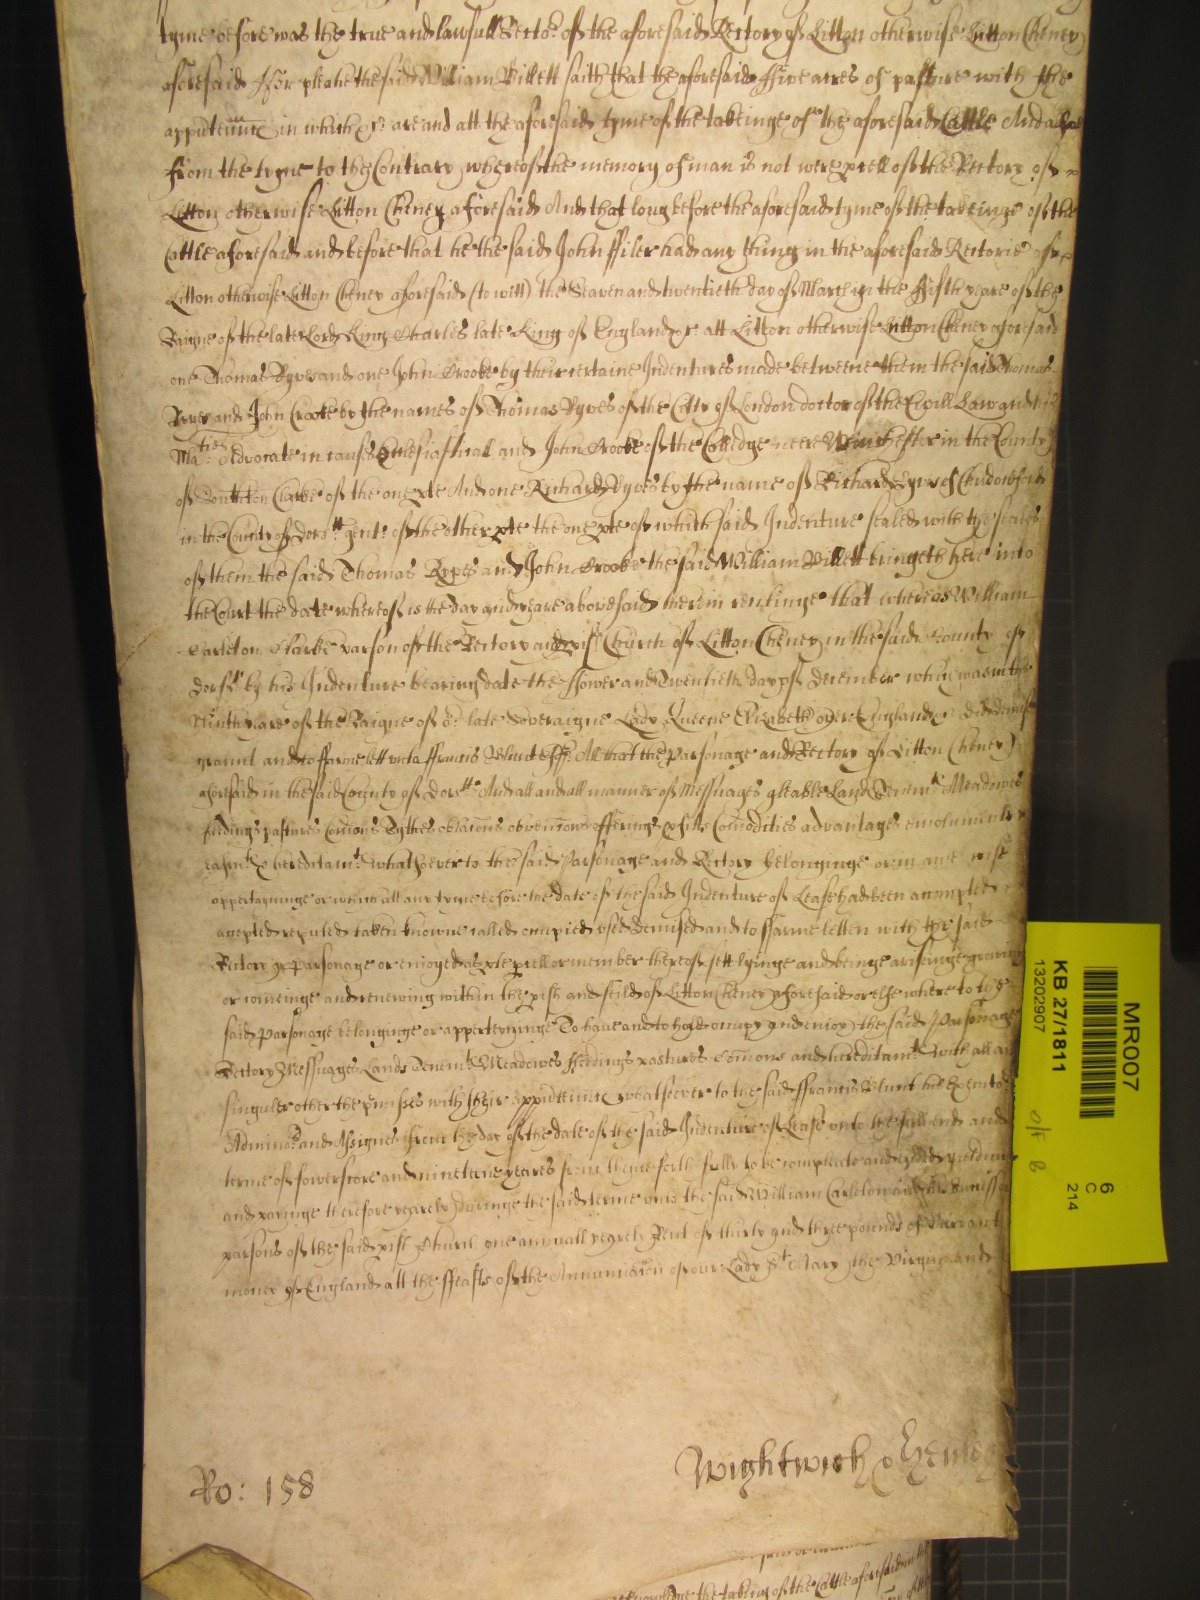 tyme before was the true and lawfull Rector of the aforesaid Rectory of Litton otherwise Litton Cheney
aforesaid For plea he the said William Billett saith that the aforesaid Five acres of pasture with the
appurtennc in which &c are and att the aforesaid tyme of the takeinge of the aforesaid Cattle And alsoe
from the tyme to the Contrary whereof the memory of man is not were pcell of the Rectory of
Litton otherwise Litton Cheney aforesaid And that long before the aforesaid tyme of the takeinge of the
Cattle aforesaid and before that he the said John ffiler had any thing in the aforesaid Rectorie of
Litton otherwise Litton Cheney aforesaid (to witt) the Seaven and twentieth day of March in the Fifth yeare of the
Raigne of the late Lord King Charles late King of England &c att Litton otherwise Litton Cheney aforesaid
one Thomas Ryves and one John Crooke by their certaine Indentures made betweene them the said Thomas
Ryves and John Crooke by the names of Thomas Ryves of the Citty of London doctor of the Civill Law and his
Ma:ties Advocate in causes Ecclesiasticall and John Crooke of the Colledge neere Winchester in the County
of Southton Clarke of the one pte And one Richard Ryves by the name of Richard Ryves of
in the County of Dors:tt gent: of the other pte the one pte of which said Indenture sealed with the seales
of them the said Thomas Ryves and John Crooke the said William Billett bringeth here into
the Court the date whereof is the day and yeare abovesaid therein recitinge that whereas William
Carleton Clarke parson of the Rectory and pish Church of Litton Cheney in the said County of
Dors:tt by his Indenture bearing date the Fower and Twentieth day of December which was in the
Ninth yeare of the Raigne of o:r late Soveraigne Lady Queene Elizabeth over England &c did demise
graunt and to farme lett unto ffrancis Blunt Esq: All that the Parsonage and Rectory of Litton Cheney
aforesaid in the said County of Dors:tt And all and all manner of Messuages gleable Land Tenem:ts Meadowes
feedings pastures Comons Tythes oblacons obvencons offerings pfitts Comodities advantages emoluments
easm:ts & hereditam:ts whatsoever to the said Parsonage and Rectory belonginge or in anie wise
appertayninge or which att any tyme before the date of the said Indenture of Lease had been accompted
accepted reputed taken knowne called occupied used demised and to ffarme letten with the said
Rectory or Parsonage or enioyed as pte pcell or member thereof sett lyinge and beinge ariseinge growing
or comeinge and renewing within the pish and feilds of Litton Cheney aforesaid or else where to the
said Parsonage belonginge or apperteyninge To have and to hold occupy and enioy the said Parsonage
Rectory Messuages Lands Tenem:ts Meadowes Feedings pastures Comons and hereditam:ts with all and
singuler other the pmisses with their appurtennc whatsoever to the said ffrancis Blunt his Executo:rs
Admino:rs and Assignes From the day of the date of the said Indenture of Lease unto the full end and
terme of fowerscore and nineteene yeares from thence forth fully to be compleate and ended yeildinge
and payinge therefore yearely duringe the said terme unto the said William Carleton and his successors
parsons of the said pish Church one annuall yearely Rent of thirty and three pounds of Currant
money of England att the ffeaste of the Annunciacon of our Lady S:t Mary the Virgin and
Ro: 158
Wightwick & Henley
acknowledge the taking of the Cattle aforesaid in the
MR007
KB 27/1811
13202907
6
C
214